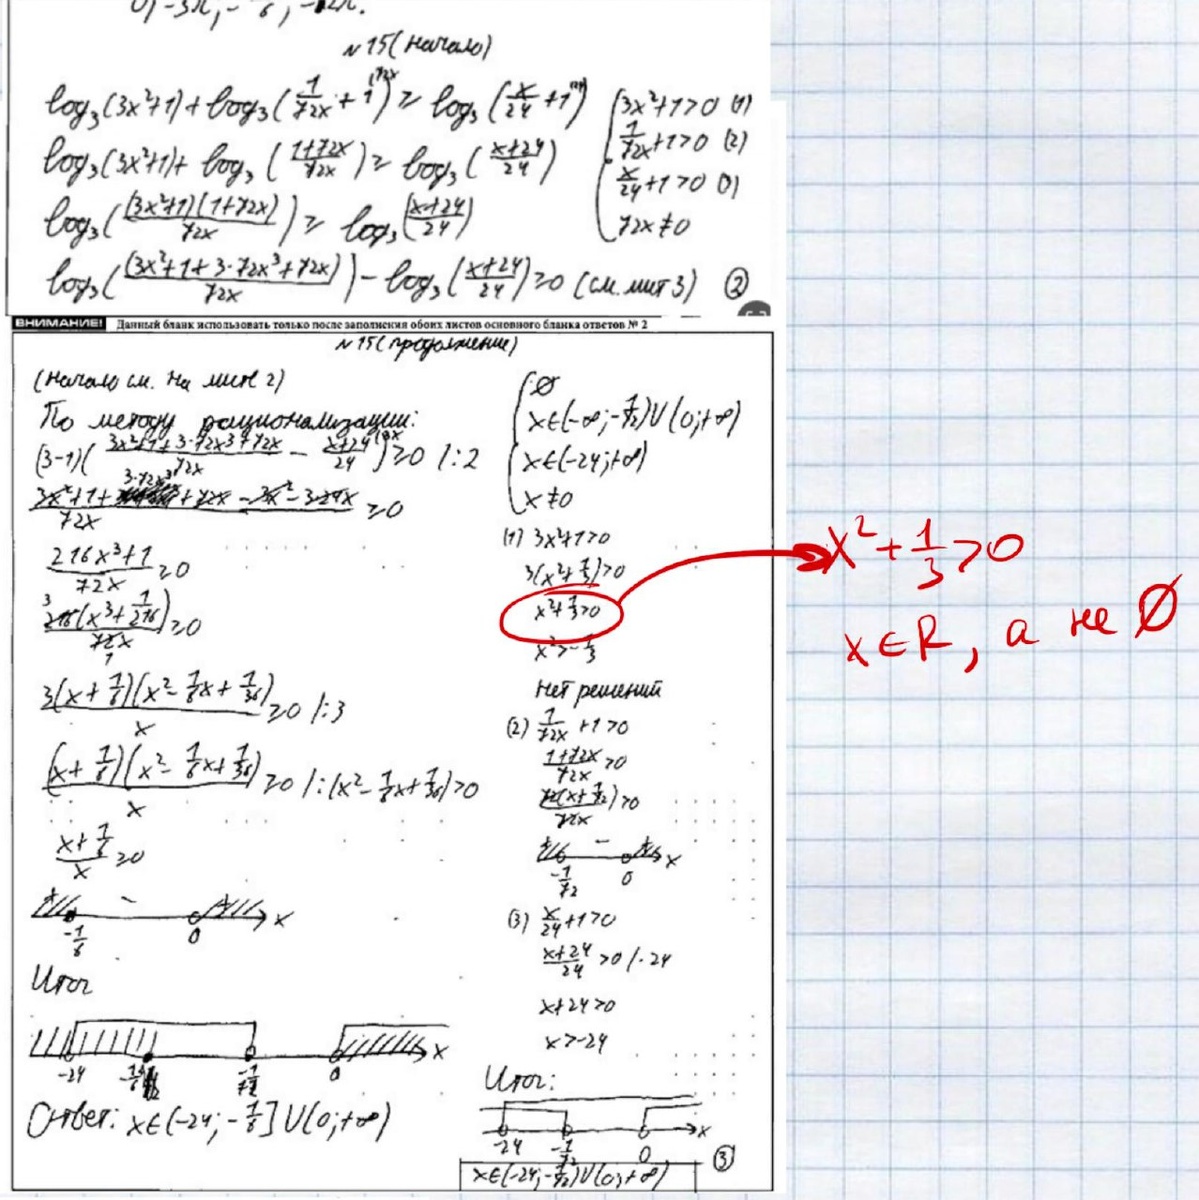 №15 (начало)
log₃(3x²+1) + log₃(1/72x + 1) ≥ log₃(x/24 + 1)
log₃(3x²+1) + log₃((1+72x)/72x) ≥ log₃((x+24)/24)
log₃((3x²+1)(1+72x)/72x) ≥ log₃((x+24)/24)
log₃((3x²+1+3·72x³+72x)/72x) - log₃((x+24)/24) ≥ 0 (см. лист 3) ②
3x²+1>0 (1)
1/72x+1>0 (2)
x/24+1>0 (3)
72x≠0
ВНИМАНИЕ! Данный бланк использовать только после заполнения обоих листов основного бланка ответов № 2
№15 (продолжение)
(начало см. на листе 2)
По методу рационализации:
(3-1)((3x²+1+3·72x³+72x)/72x - (x+24)/24) ≥ 0 /:2
(3x²+1+3·72x³+72x-3x²-3·24x)/72x ≥ 0
(216x³+1)/72x ≥ 0
216(x³+1/216)/72x ≥ 0
3(x+1/6)(x²-1/6x+1/36)/x ≥ 0 /:3
(x+1/6)(x²-1/6x+1/36)/x ≥ 0 /:(x²-1/6x+1/36)>0
(x+1/6)/x ≥ 0
+ - + x
-1/6 0
Итог
x
-24 -1/6 -1/72 0
Ответ: x∈(-24;-1/6]∪(0;+∞)
∅
x∈(-∞;-1/72)∪(0;+∞)
x∈(-24;+∞)
x≠0
(1) 3x²+1>0
3(x²+1/3)>0
x²+1/3>0
x²>-1/3
Нет решений
(2) 1/72x +1>0
(1+72x)/72x >0
72(x+1/72)/72x >0
+ - + x
-1/72 0
(3) x/24+1>0
(x+24)/24 >0 /·24
x+24>0
x>-24
Итог:
x
-24 -1/72 0
x∈(-24;-1/72)∪(0;+∞)
③
x²+1/3>0
x∈R, а не ∅